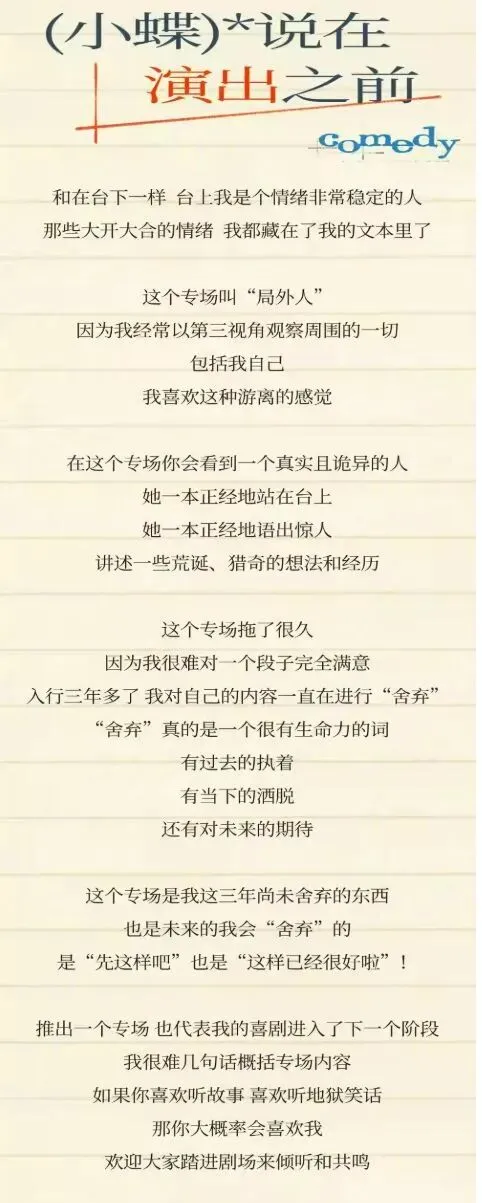 (小蝶)*说在
演出之前
comedy
和在台下一样 台上我是个情绪非常稳定的人
那些大开大合的情绪 我都藏在了我的文本里了
这个专场叫“局外人”
因为我经常以第三视角观察周围的一切
包括我自己
我喜欢这种游离的感觉
在这个专场你会看到一个真实且诡异的人
她一本正经地站在台上
她一本正经地语出惊人
讲述一些荒诞、猎奇的想法和经历
这个专场拖了很久
因为我很难对一个段子完全满意
入行三年多了 我对自己的内容一直在进行“舍弃”
“舍弃”真的是一个很有生命力的词
有过去的执着
有当下的洒脱
还有对未来的期待
这个专场是我这三年尚未舍弃的东西
也是未来的我会“舍弃”的
是“先这样吧”也是“这样已经很好啦”！
推出一个专场 也代表我的喜剧进入了下一个阶段
我很难几句话概括专场内容
如果你喜欢听故事 喜欢听地狱笑话
那你大概率会喜欢我
欢迎大家踏进剧场来倾听和共鸣